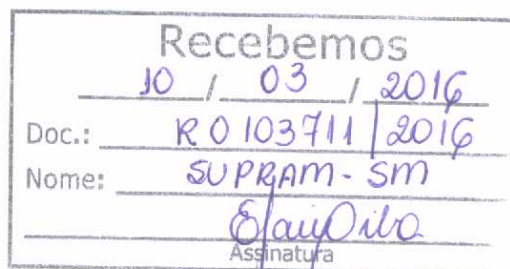 Recebemos
10 / 03 / 2016
Doc.: R0103711/2016
Nome: SUPRAM - SM
Assinatura